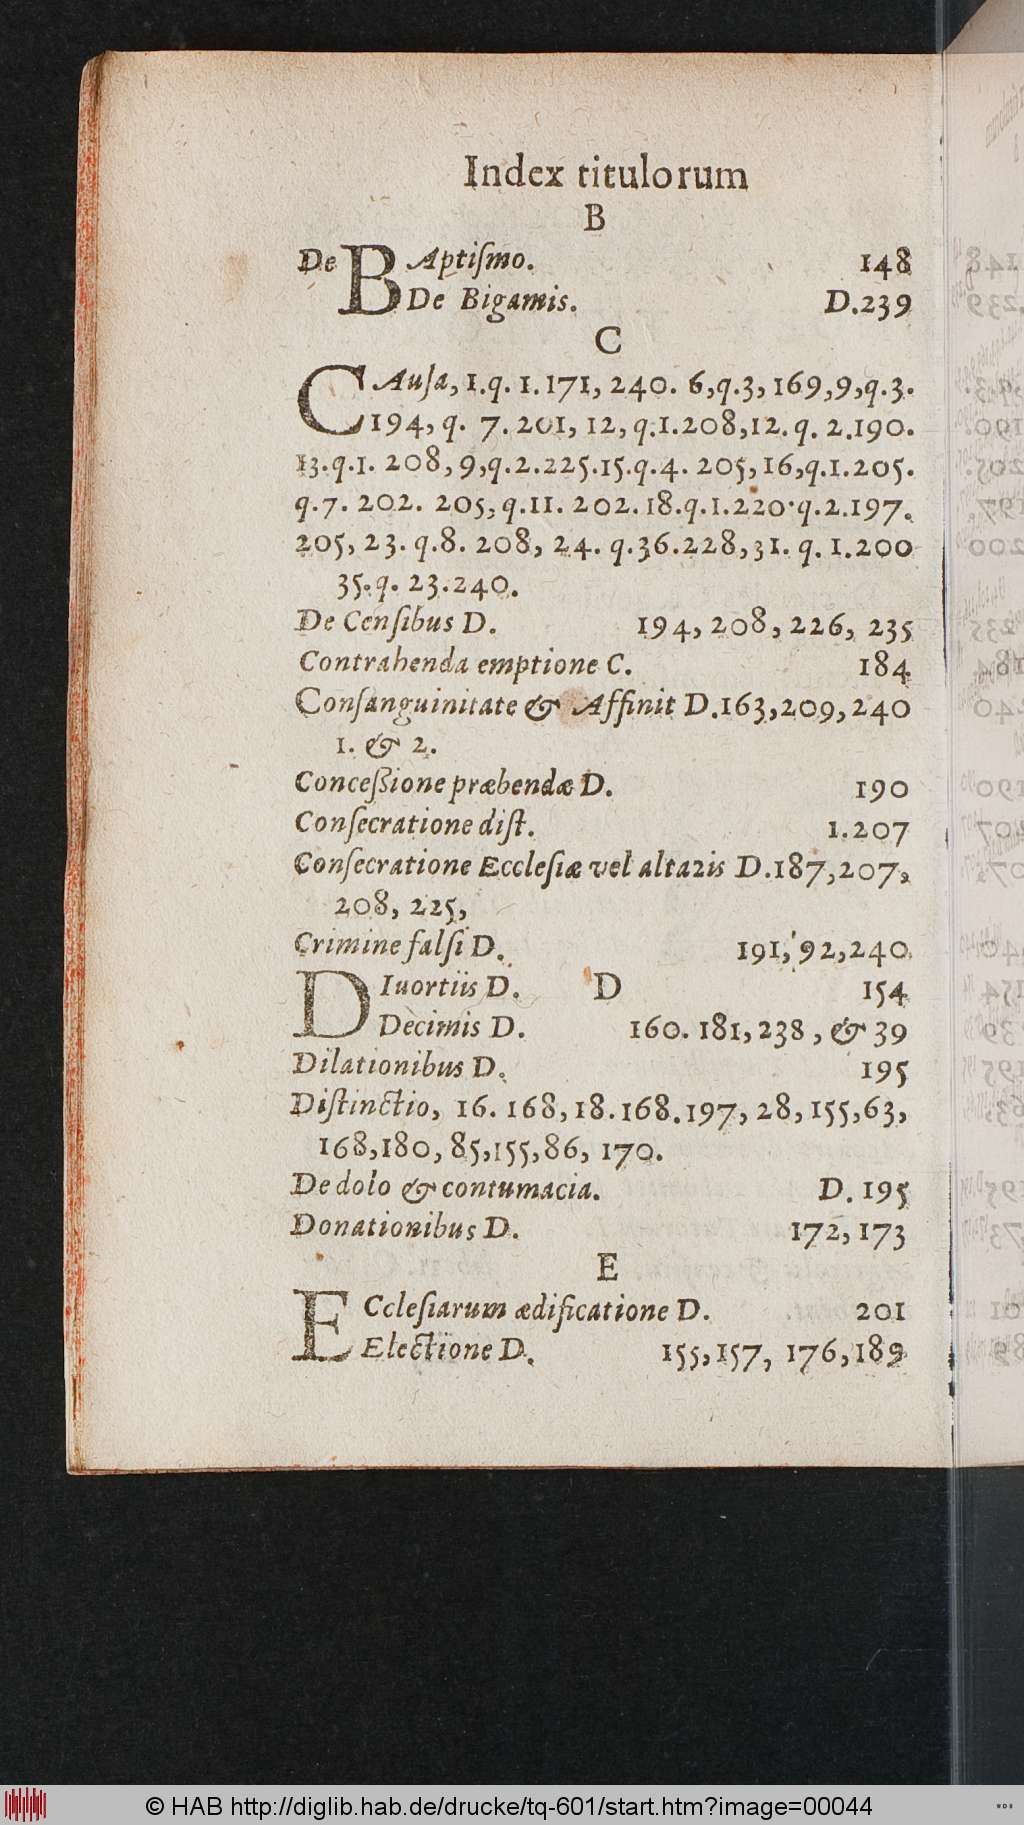 Index titulorum
B
De BAptiſmo. 148
De Bigamis. D.239
C
CAuſa, 1.q. 1.171, 240. 6,q.3, 169,9,q.3.
194, q. 7. 201, 12, q.1.208,12. q. 2.190.
13.q.1. 208, 9,q.2.225.15.q.4. 205, 16,q.1.205.
q.7. 202. 205, q.11. 202. 18.q.1.220.q.2.197.
205, 23. q.8. 208, 24. q.36.228, 31. q. 1.200
35.q. 23.240.
De Cenſibus D. 194, 208, 226, 235
Contrahenda emptione C. 184
Conſanguinitate & Affinit D.163,209,240
1. & 2.
Conceßione præbendæ D. 190
Conſecratione diſt. 1.207
Conſecratione Eccleſiæ vel alta2is D.187,207,
208, 225,
Crimine falſi D. 191,'92,240
D
DIuortiis D. 154
Decimis D. 160. 181, 238, & 39
Dilationibus D. 195
Diſtinctio, 16. 168, 18. 168. 197, 28, 155, 63,
168,180, 85,155,86, 170.
De dolo & contumacia. D. 195
Donationibus D. 172, 173
E
ECcleſiarum ædificatione D. 201
Electione D. 155,157, 176,189
© HAB http://diglib.hab.de/drucke/tq-601/start.htm?image=00044